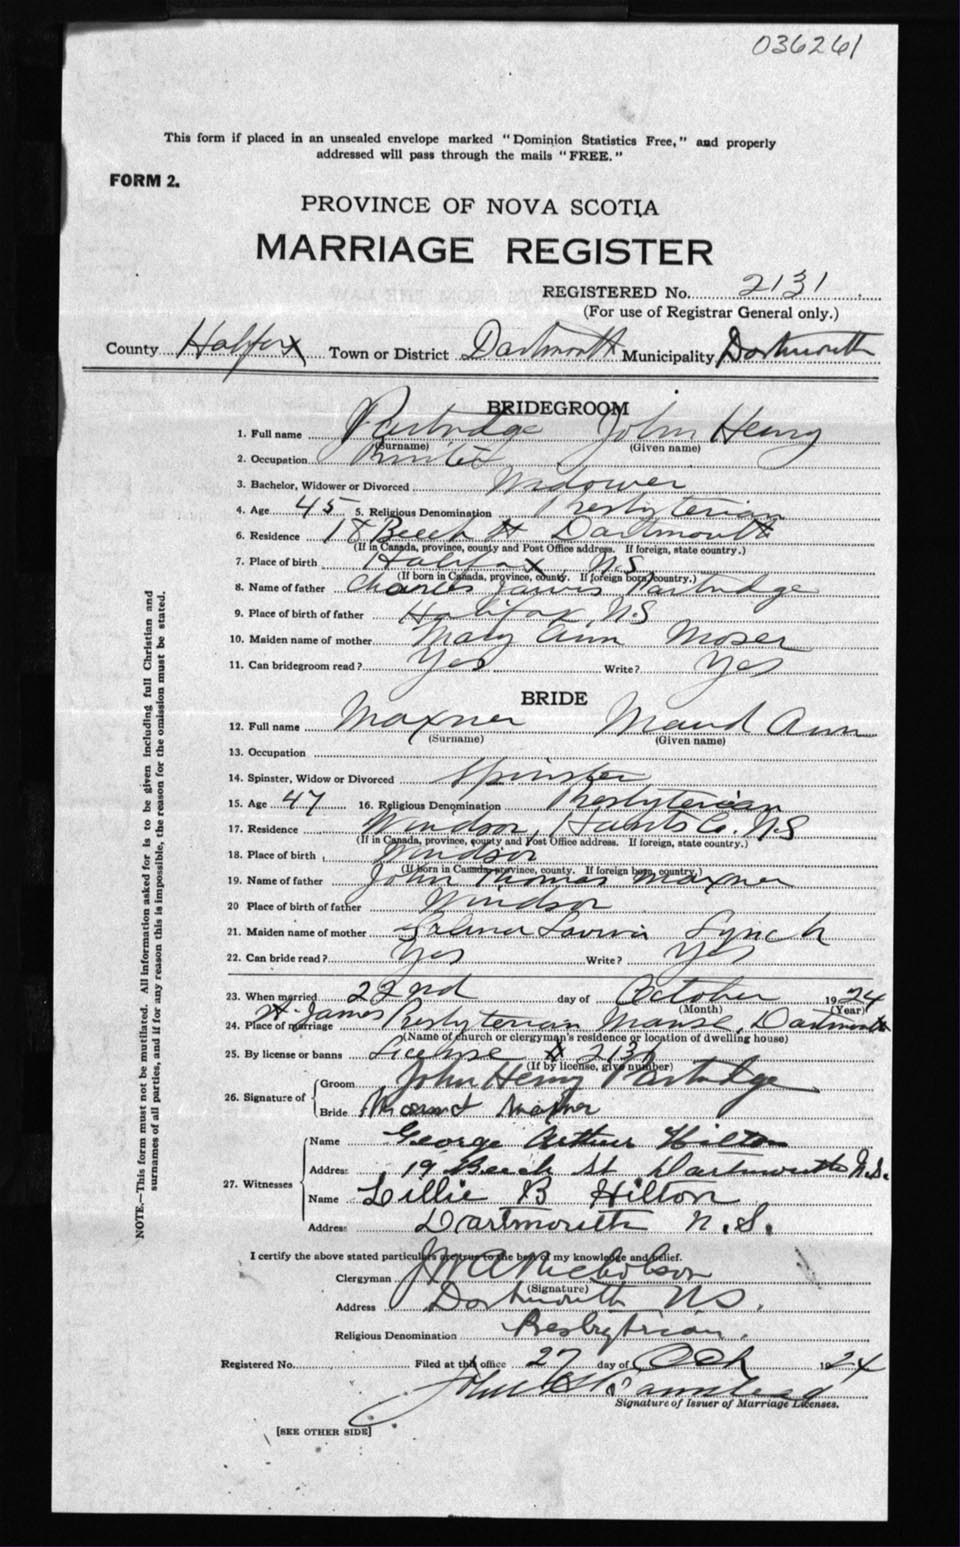 036261
This form if placed in an unsealed envelope marked "Dominion Statistics Free," and properly
addressed will pass through the mails "FREE."
FORM 2.
PROVINCE OF NOVA SCOTIA
MARRIAGE REGISTER
REGISTERED No. 2131
(For use of Registrar General only.)
County Halifax Town or District Dartmouth Municipality Dartmouth
BRIDEGROOM
1. Full name Partridge John Henry
(Surname) (Given name)
2. Occupation
3. Bachelor, Widower or Divorced Widower
4. Age 45 5. Religious Denomination Presbyterian
6. Residence 18 Beech St Dartmouth
(If in Canada, province, county and Post Office address. If foreign, state country.)
7. Place of birth Halifax N.S
(If born in Canada, province, county. If foreign born, country.)
8. Name of father Charles Jarvis Partridge
9. Place of birth of father Halifax, N.S
10. Maiden name of mother Mary Ann Moser
11. Can bridegroom read? Yes Write? Yes
BRIDE
12. Full name Maxner Maud Ann
(Surname) (Given name)
13. Occupation
14. Spinster, Widow or Divorced Spinster
15. Age 47 16. Religious Denomination Presbyterian
17. Residence Windsor, Hants Co. N.S
(If in Canada, province, county and Post Office address. If foreign, state country.)
18. Place of birth Windsor
(If born in Canada, province, county. If foreign born, country.)
19. Name of father John Thomas Maxner
20 Place of birth of father Windsor
21. Maiden name of mother Lynch
22. Can bride read? Yes Write? Yes
23. When married 22nd day of October 1924
(Month) (Year)
24. Place of marriage St. James Presbyterian Manse, Dartmouth
(Name of church or clergyman's residence or location of dwelling house)
25. By license or banns License
(If by license, give number)
26. Signature of Groom John Henry Partridge
Bride Maud Maxner
27. Witnesses Name George Arthur Hilton
Address 19 Beech St Dartmouth N.S.
Name Lillie B Hilton
Address Dartmouth N.S.
I certify the above stated particulars are true to the best of my knowledge and belief.
Clergyman Nicholson
(Signature)
Address Dartmouth NS.
Religious Denomination Presbyterian.
Registered No. Filed at this office 27 day of Oct 1924
John
Signature of Issuer of Marriage Licenses.
[SEE OTHER SIDE]
NOTE.—This form must not be mutilated. All information asked for is to be given including full Christian and
surnames of all parties, and if for any reason this is impossible, the reason for the omission must be stated.